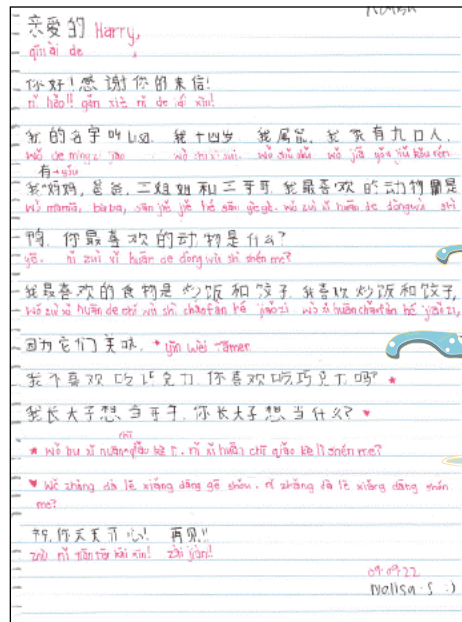 亲爱的 Harry,
qīn ài de
你好！感谢你的来信！
nǐ hǎo!! gǎn xiè nǐ de lái xìn!
我的名字叫 Lisa. 我十四岁. 我属鼠. 我家有九口人.
wǒ de míngzi jiào wǒ shí sì suì. wǒ shǔ shǔ. wǒ jiā yǒu jiǔ kǒu rén
有→yǒu
我妈妈, 爸爸, 三姐姐和三哥哥. 我最喜欢的动物是
wǒ māmā, bàba, sān jiě jiě hé sān gēgē. wǒ zuì xǐ huān de dòngwù shì
鸭. 你最喜欢的动物是什么?
yā. nǐ zuì xǐ huān de dòng wù shì shén me?
我最喜欢的食物是炒饭和饺子. 我喜欢炒饭和饺子,
wǒ zuì xǐ huān de chī wù shì chǎofàn hé jiǎozi wǒ xǐ huān chǎofàn hé jiǎozi,
因为它们美味. * yīn wèi tāmen
我不喜欢吃巧克力. 你喜欢吃巧克力吗? *
我长大子想当哥手. 你长大子想当什么? ♥
chī
* wǒ bu xǐ huān qiǎo kè l. nǐ xǐ huān chī qiǎo kè lì shén me?
♥ wǒ zhǎng dà lē xiǎng dāng gē shǒu. nǐ zhǎng dà lē xiǎng dāng shén
me?
祝你天天开心! 再见!!
zhù nǐ tiān tiān kāi xīn! zài jiàn!!
09.09.22
Nalisa.S :)